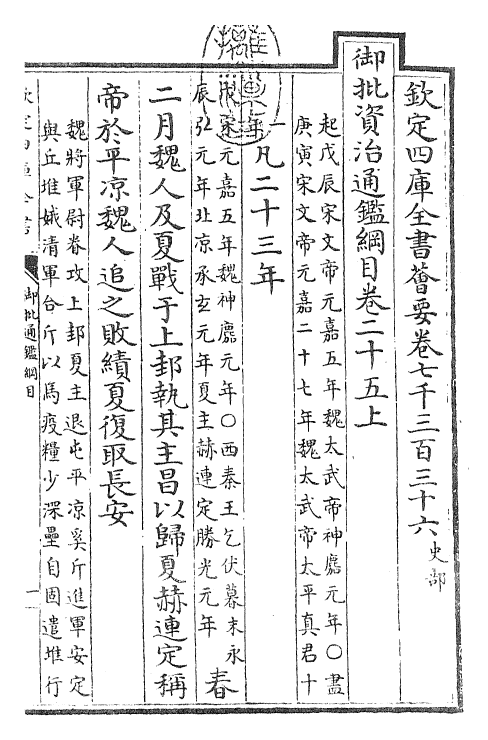 欽定四庫全書薈要卷七千三百三十六 史部
御批資治通鑑綱目卷二十五上
起戊辰宋文帝元嘉五年魏太武帝神䴥元年〇盡
庚寅宋文帝元嘉二十七年魏太武帝太平真君十
一年 凡二十三年
戊宋元嘉五年魏神䴥元年〇西秦王乞伏暮末永
辰弘元年北凉承玄元年夏主赫連定勝光元年
春
二月魏人及夏戰于上邽執其主昌以歸夏赫連定稱
帝於平凉魏人追之敗績夏復取長安
魏將軍尉眷攻上邽夏主退屯平凉奚斤進軍安定
與丘堆娥清軍合斤以馬疫糧少深壘自固遣堆行
欽定四庫全書
御批通鑑綱目
一